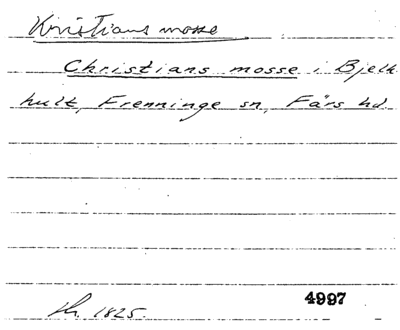 Kristians mosse
Christians mosse i Bjelk
hult, Frenninge sn, Färs hd.
1825.
4997